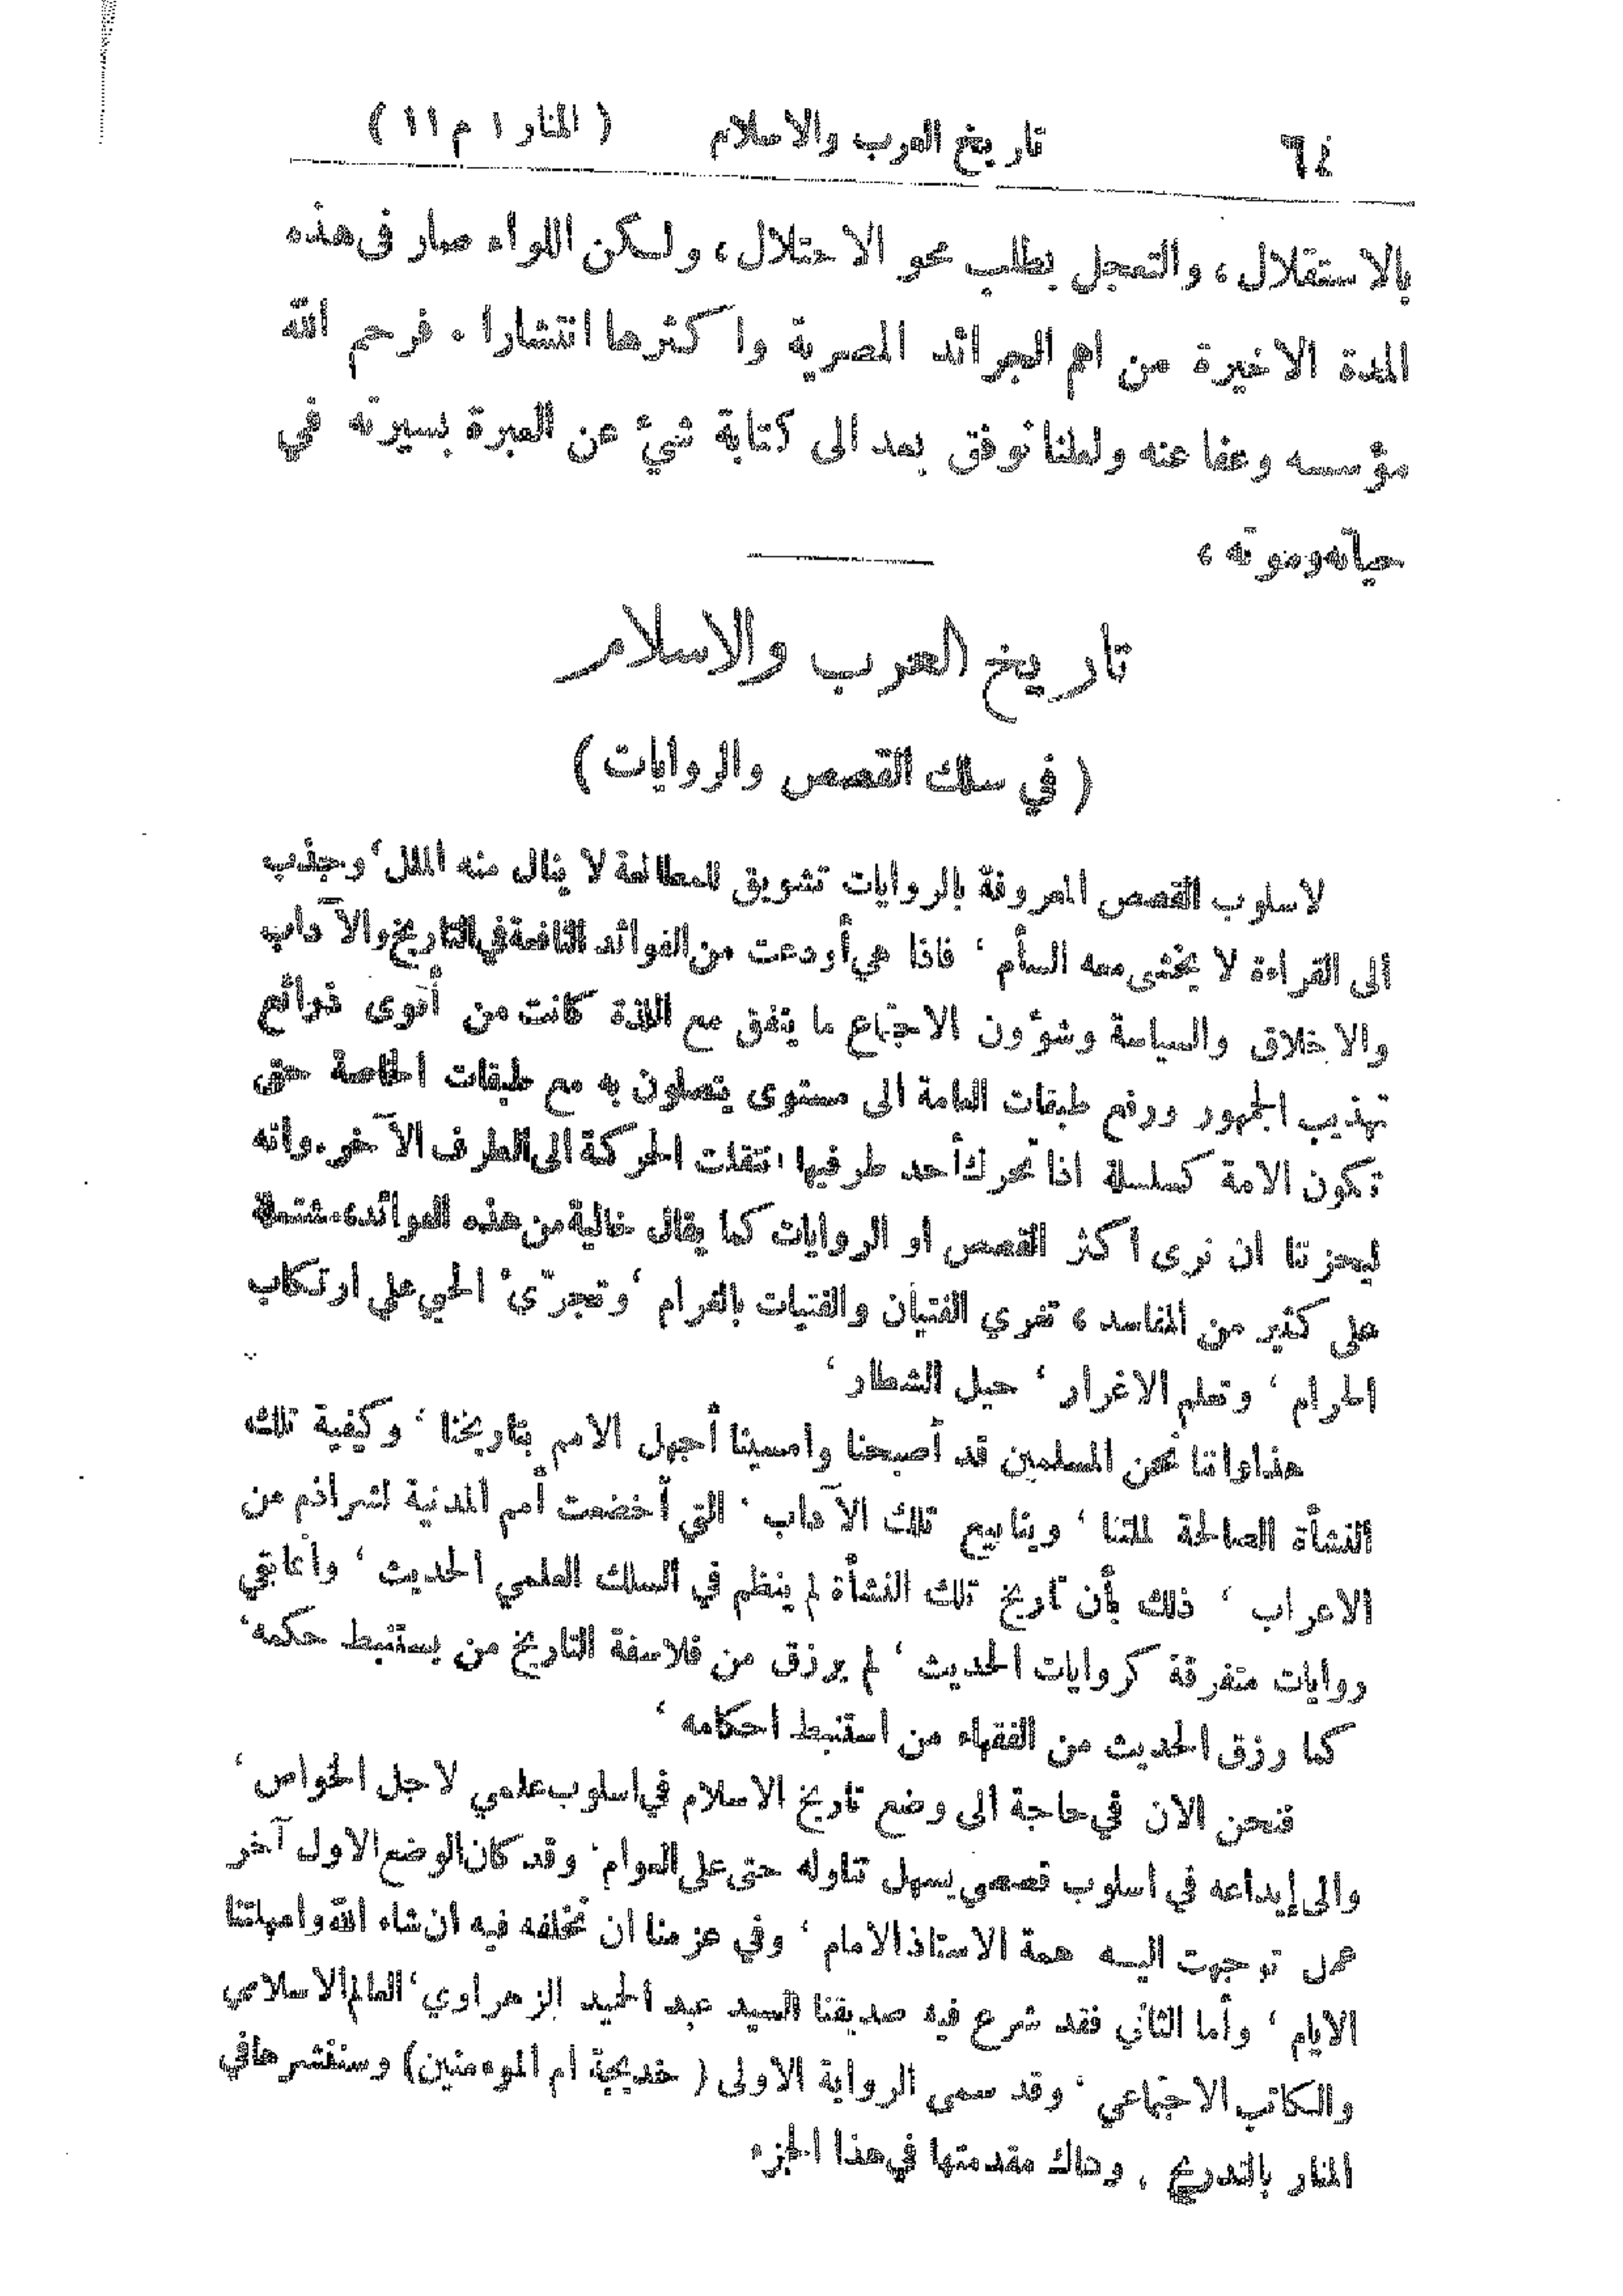 ٦٤ تاريخ العرب والاسلام ( المنار ١ م ١١ )
بالاستقلال، والتعجل بطلب محو الاحتلال، ولكن اللواء صار في هذه
المدة الاخيرة من اهم الجرائد المصرية واكثرها انتشارا . فرحم الله
مؤسسه وعفا عنه ولعلنا نوفق بعد الى كتابة شيء عن العبرة بسيرته في
حياته وموته ،
تاريخ العرب والاسلام
( في سلك القصص والروايات )
لاسلوب القصص المعروفة بالروايات تشويق للمطالعة لا ينال منه الملل ، وجذب
الى القراءة لا يخشى معه السأم ، فاذا هي أودعت من الفوائد النافعة في التاريخ والآداب
والاخلاق والسياسة وشؤون الاجتماع ما يتفق مع اللذة كانت من أقوى ذرائع
تهذيب الجمهور ورفع طبقات العامة الى مستوى يتصلون به مع طبقات الخاصة حتى
تكون الامة كسلسلة اذا تحرك أحد طرفيها انتقلت الحركة الى الطرف الآخر. وانه
ليحزننا ان نرى أكثر القصص او الروايات كما يقال خالية من هذه الفوائد، مشتملة
على كثير من المفاسد ، تغري الفتيان والفتيات بالغرام ، وتجرّئ الحيي على ارتكاب
الحرام ، وتعلم الاغرار ، حيل الشطار ،
هذا واننا نحن المسلمين قد أصبحنا وامسينا أجهل الامم بتاريخنا ، وكيفية تلك
النشأة الصالحة لملتنا ، وينابيع تلك الآداب ، التي أخضعت أمم المدنية لشراذم من
الاعراب ، ذلك بأن تاريخ تلك النشأة لم ينظم في السلك العلمي الحديث ، وانما بقي
روايات متفرقة كروايات الحديث ، لم يرزق من فلاسفة التاريخ من يستنبط حكمه ،
كما رزق الحديث من الفقهاء من استنبط احكامه ،
فنحن الان في حاجة الى وضع تاريخ الاسلام في اسلوب علمي لاجل الخواص ،
والى إيداعه في اسلوب قصصي يسهل تناوله حتى على العوام ، وقد كان الوضع الاول آخر
عمل توجهت اليسه همة الاستاذ الامام ، وفي عزمنا ان نخلفه فيه ان شاء الله وامهلتنا
الايام ، وأما الثاني فقد شرع فيه صديقنا السيد عبد الحميد الزهراوي ، العالم الاسلامي
والكاتب الاجتماعي ، وقد سمى الرواية الاولى ( خديجة ام المؤمنين ) وسننشرها في
المنار بالتدريج . وهاك مقدمتها في هذا الجزء